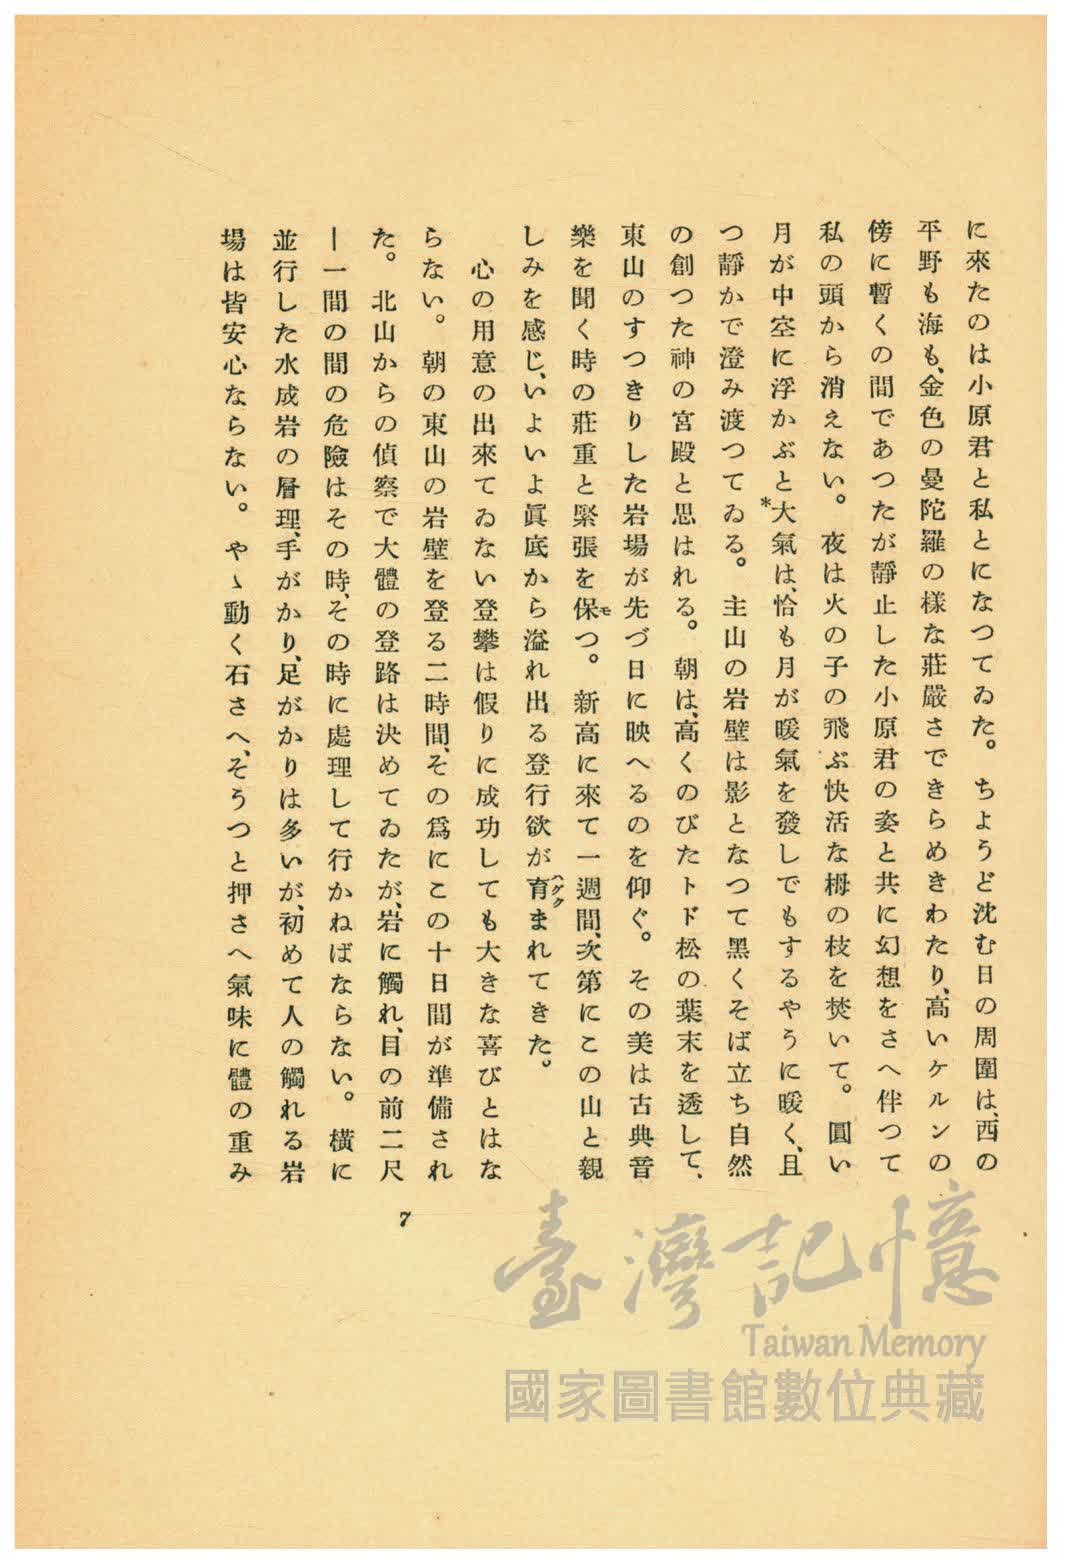 に來たのは小原君と私とになつてゐた。ちようど沈む日の周圍は、西の
平野も海も、金色の曼陀羅の樣な莊嚴さできらめきわたり、高いケルンの
傍に暫くの間であつたが靜止した小原君の姿と共に幻想をさへ伴つて
私の頭から消えない。夜は火の子の飛ぶ快活な栂の枝を焚いて。圓い
月が中空に浮かぶと*大氣は、恰も月が暖氣を發しでもするやうに暖く、且
つ靜かで澄み渡つてゐる。主山の岩壁は影となつて黑くそば立ち自然
の創つた神の宮殿と思はれる。朝は、高くのびたトド松の葉末を透して、
東山のすつきりした岩場が先づ日に映へるのを仰ぐ。その美は古典音
樂を聞く時の莊重と緊張を保モつ。新高に來て一週間、次第にこの山と親
しみを感じ、いよいよ眞底から溢れ出る登行欲が育ハグクまれてきた。
心の用意の出來てゐない登攀は假りに成功しても大きな喜びとはな
らない。朝の東山の岩壁を登る二時間、その爲にこの十日間が準備され
た。北山からの偵察で大體の登路は決めてゐたが、岩に觸れ、目の前二尺
ー一間の間の危險はその時、その時に處理して行かねばならない。橫に
並行した水成岩の層理、手がかり、足がかりは多いが、初めて人の觸れる岩
場は皆安心ならない。やゝ動く石さへ、そうつと押さへ氣味に體の重み
7
臺灣記憶
Taiwan Memory
國家圖書館數位典藏